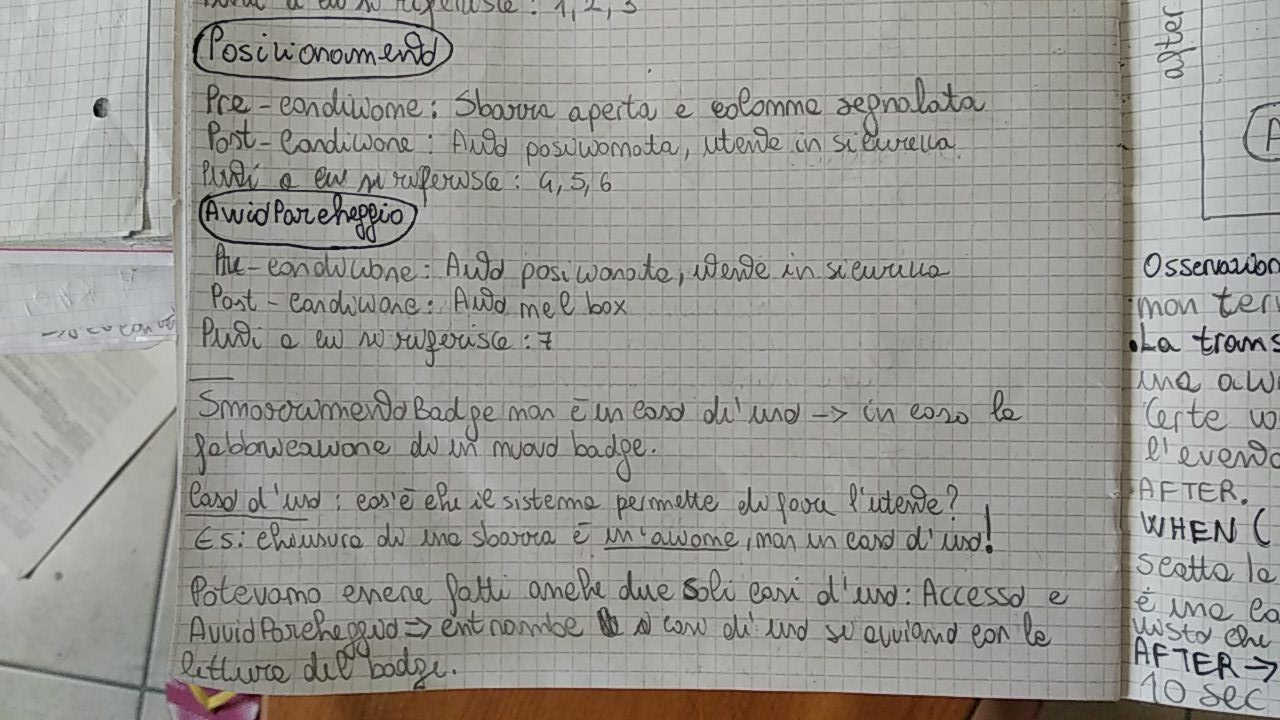 a cui si riferisce: 1, 2, 3
Posizionamento
Pre-condizione: Sbarra aperta e colonna segnalata
Post-Condizione: Auto posizionata, utente in sicurezza
Punti a cui si riferisce: 4, 5, 6
AvvioParcheggio
Pre-condizione: Auto posizionata, utente in sicurezza
Post-Condizione: Auto nel box
Punti a cui si riferisce: 7
SmarrimentoBadge non è un caso d'uso → in caso la
fabbricazione di un nuovo badge.
Caso d'uso: cos'è che il sistema permette di fare l'utente?
Es: chiusura di una sbarra è un'azione, non un caso d'uso!
Potevano essere fatti anche due soli casi d'uso: Accesso e
AvvioParcheggio ⇒ entrambe i casi d'uso si avviano con la
lettura del badge.
after
A
Osservazion
non ter
•La trans
una
Certe
l'evento
AFTER.
WHEN (
scatta la
è una
visto che
AFTER →
10 sec